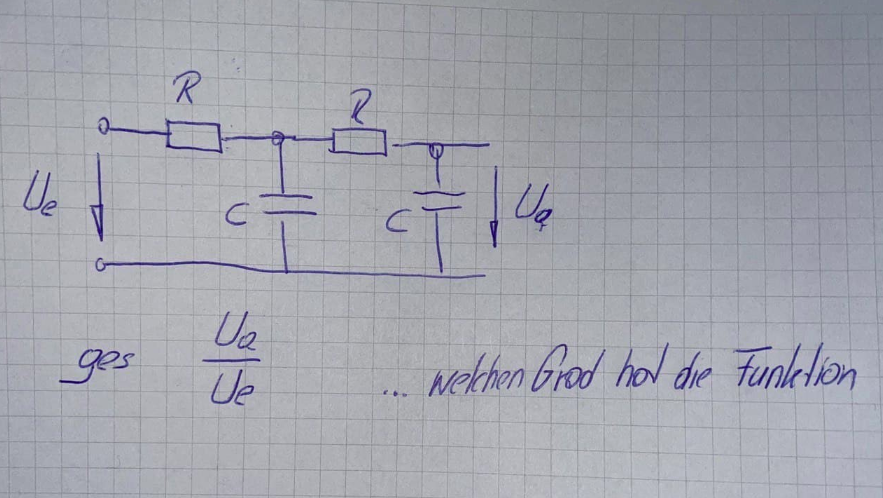 R
R
Ue
C
C
Ua
ges Ua/Ue ... welchen Grad hat die Funktion